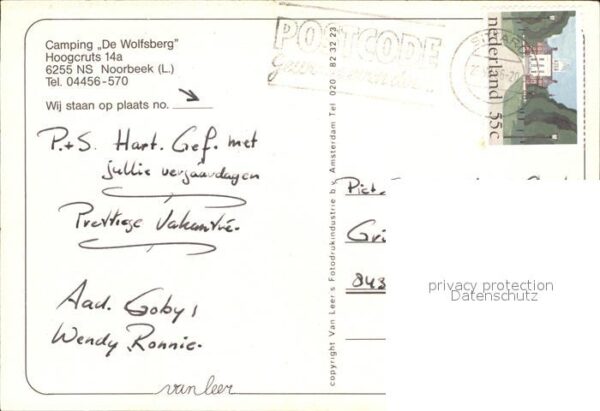 Camping „De Wolfsberg”
Hoogcruts 14a
6255 NS Noorbeek (L.)
Tel. 04456-570
Wij staan op plaats no.
P.+S. Hart. Gef. met
jullie verjaardagen
Prettige Vakantie.
Aad. Goby,
Wendy Ronnie.
van leer
copyright Van Leer's Fotodrukindustrie b.v. Amsterdam Tel 020 - 82 32 23
POSTCODE
nederland 55c
privacy protection
Datenschutz